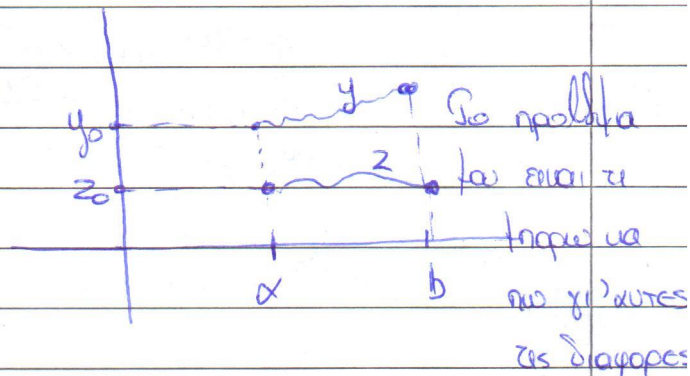 y₀
y
Το πρόβλημα
z₀
z
μου ειναι τι
μπορω να
α
b
πω γι' αυτες
τις διαφορες